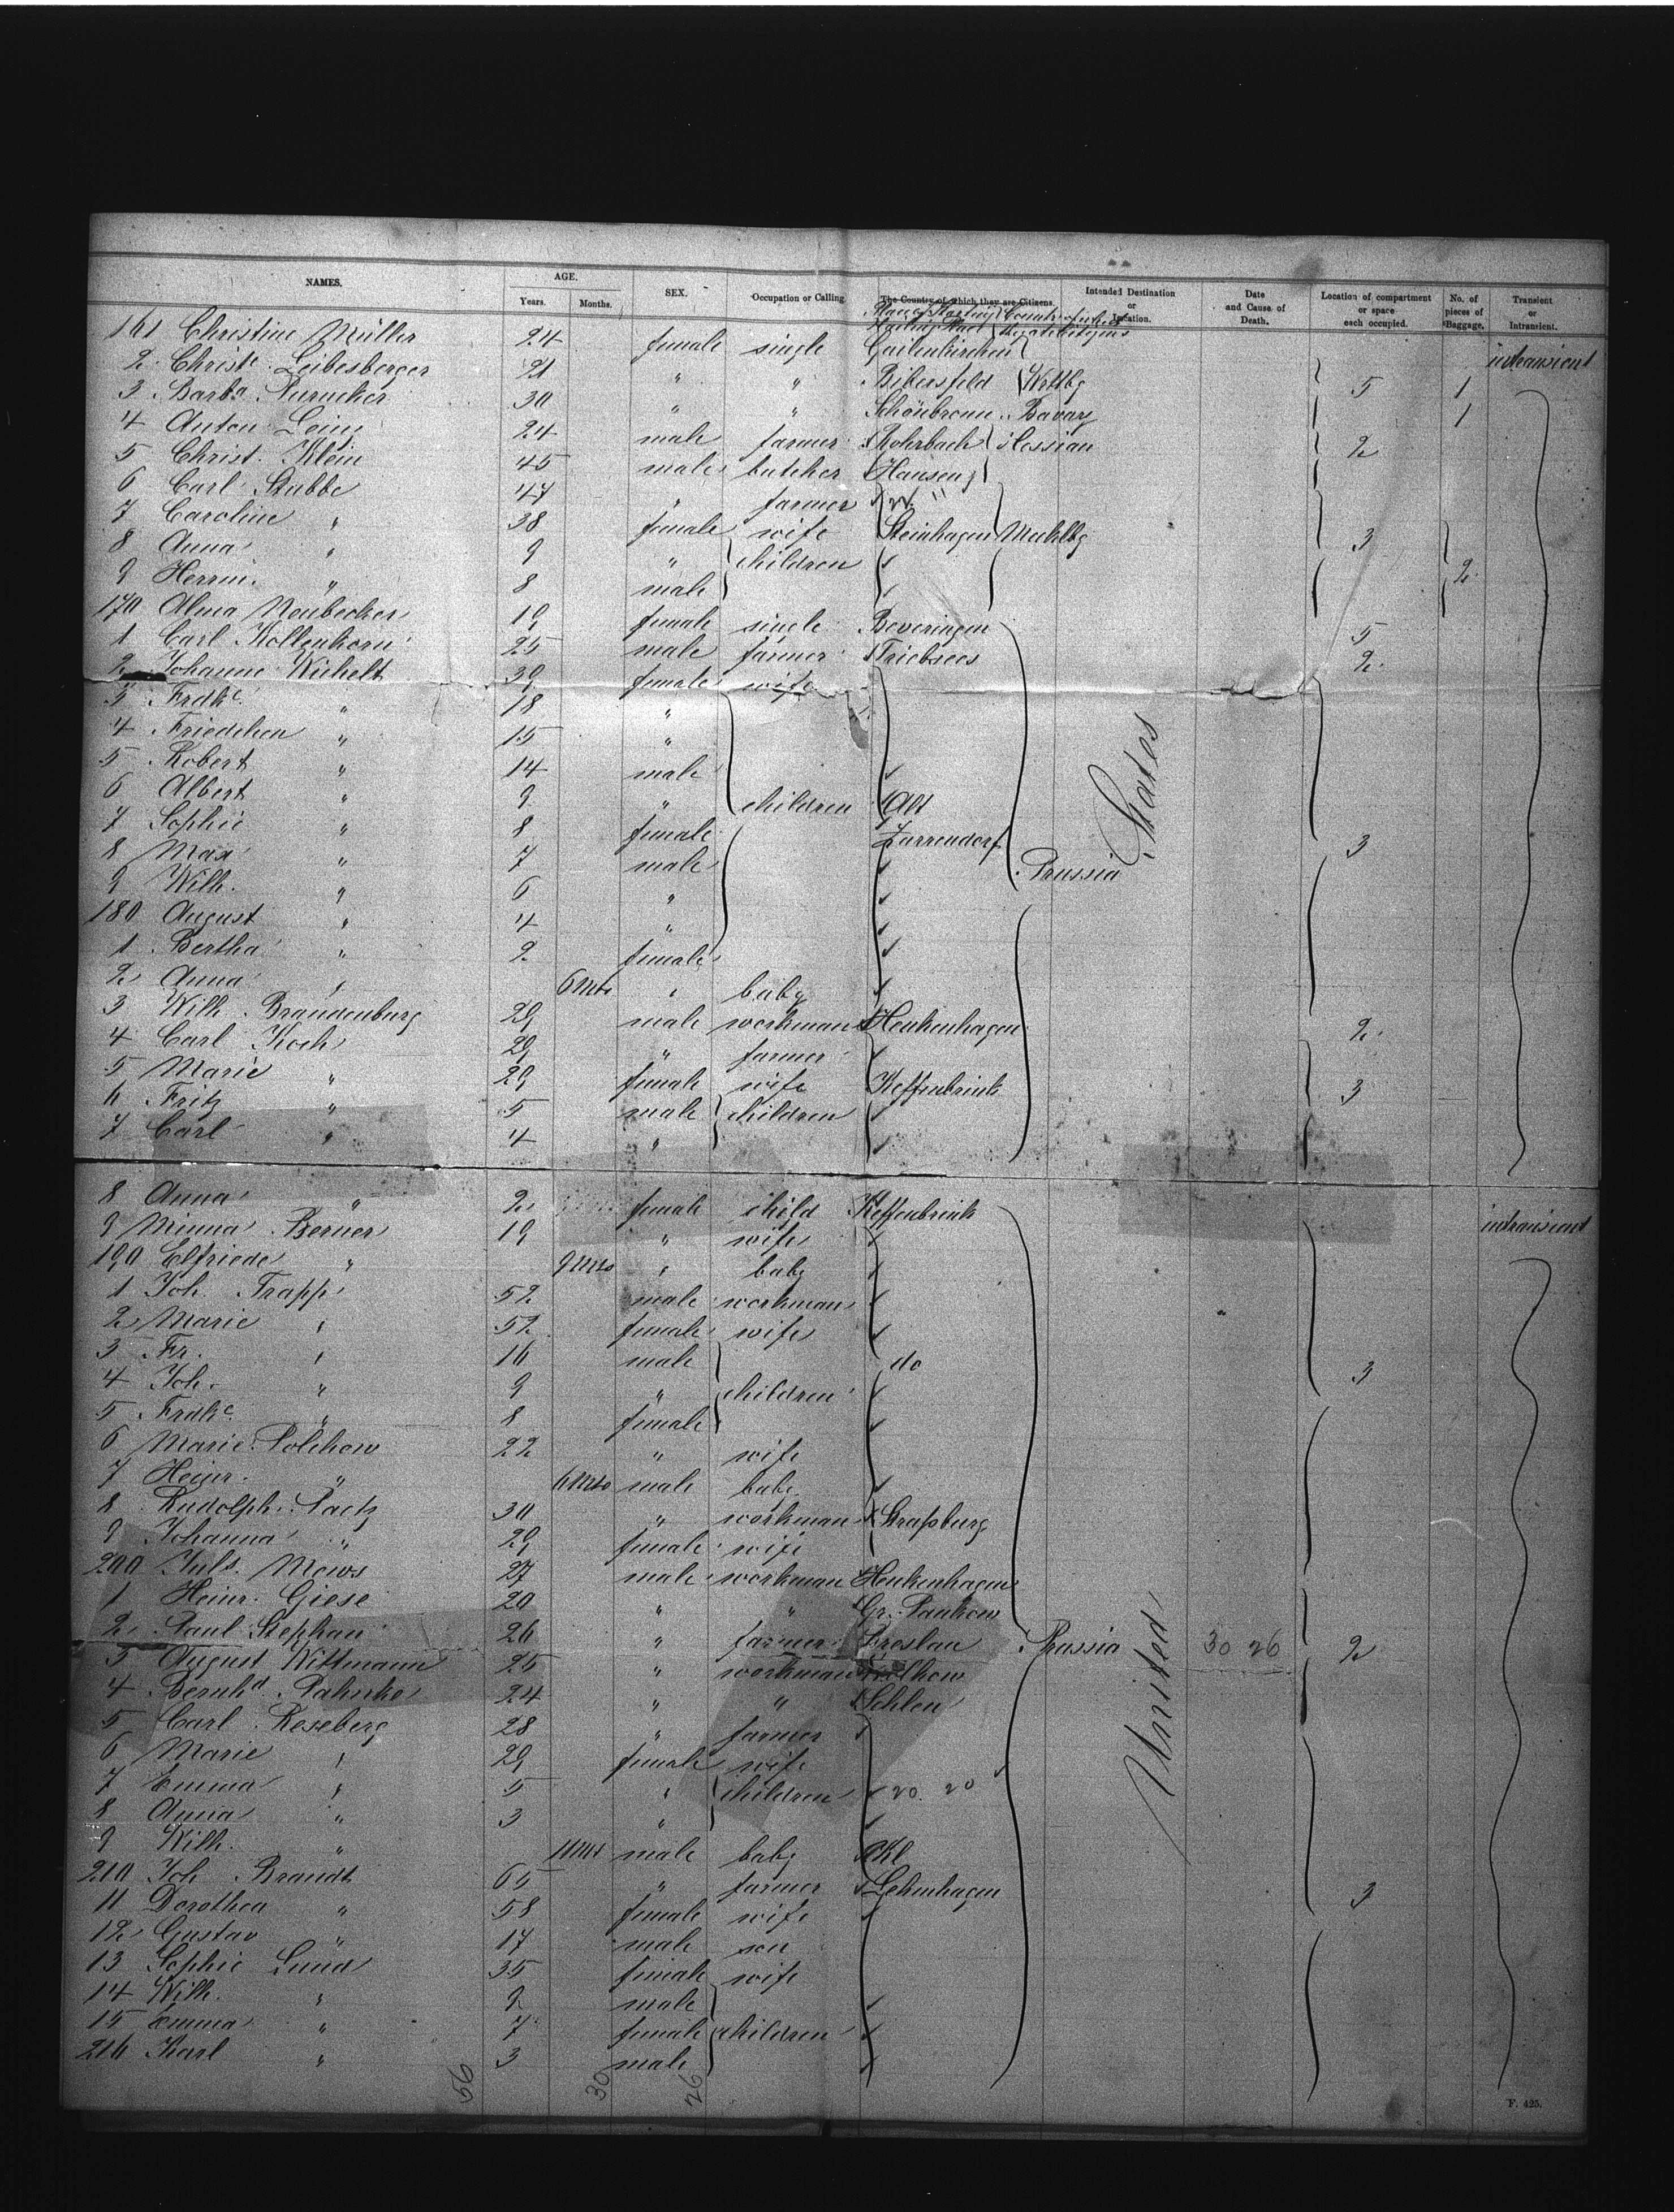 NAMES. AGE. SEX. Occupation or Calling. The Country of which they are Citizens. Intended Destination or Location. Date and Cause of Death. Location of compartment or space each occupied. No. of pieces of Baggage. Transient or Intransient.
Years. Months.
161 Christine Müller 24 female single Gailenkirchen intransient
2 Christe. Leibesberger 21 " " Bibersfeld Wrttbg 5 1
3 Barba. 30 " " Schönbronn Bavary 1
4 Anton 24 male farmer Rohrbach Hessian 2
5 Christ. Klein 45 male butcher Hausen
6 Carl Stubbe 47 " farmer
7 Caroline " 38 female wife Steinhagen Mecklbg 3
8 Anna " 9 " children
9 Herrm. " 8 male 2
170 Alma Neubecker 19 female single Beveringen 5
1 Carl Kollenhorn 25 male farmer Triebsees 2
2 Johanne Wichelt 39 female wife
3 Frdke. " 18 "
4 Friedchen " 15 "
5 Robert " 14 male
6 Albert " 9 " children Alt
7 Sophie " 8 female Zarrendorf 3
8 Max " 7 male Prussia States
9 Wilh. " 6 "
180 August " 4 "
1 Bertha " 2 female
2 Anna " 6 Mts " baby
3 Wilh. Brandenburg 29 male workman Henkenhagen 2
4 Carl Koch 29 " farmer
5 Marie " 29 female wife Keffenbrink 3
6 Fritz " 5 male children
7 Carl " 4 "
8 Anna " 2 female child Keffenbrink
9 Minna Berner 19 " wife intransient
190 Elfriede " 9 Mts " baby
1 Joh. Trapp 52 male workman
2 Marie " 52 female wife
3 Fr. " 16 male do
4 Joh. " 9 " children 3
5 Frdke. " 8 female
6 Marie Polchow 22 " wife
7 Heinr. " 6 Mts male baby
8 Rudolph Paetz 30 " workman Straßburg
9 Johanna " 29 female wife
200 Juls. Mews 27 male workman Henkenhagen
1 Heinr. Giese 20 " " Gr. Pankow
2 Paul Stephan 26 " farmer Breslau Prussia 30 26 2
3 August Wittmann 25 " workman
4 Bernhd. Pahnke 24 " " Schlen
5 Carl Reseberg 28 " farmer
6 Marie " 29 female wife United
7 Emma " 5 " children 20 20
8 Anna " 3 "
9 Wilh. " 11 Mts male baby Kl
210 Joh. Brandt 65 " farmer Lehmhagen 3
11 Dorothea " 58 female wife
12 Gustav " 17 male son
13 Sophie Lund 35 female wife
14 Wilh. " 9 male
15 Emma " 7 female children
216 Karl " 3 male
56 30 26
F. 425.